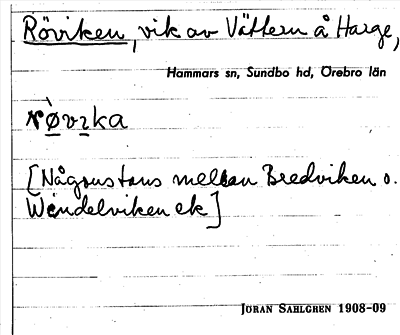 Röviken, vik av Vättern å Harge,
Hammars sn, Sundbo hd, Örebro län
rø̀vıka
[Någonstans mellan Bredviken o.
Wendelviken ek]
JÖRAN SAHLGREN 1908-09